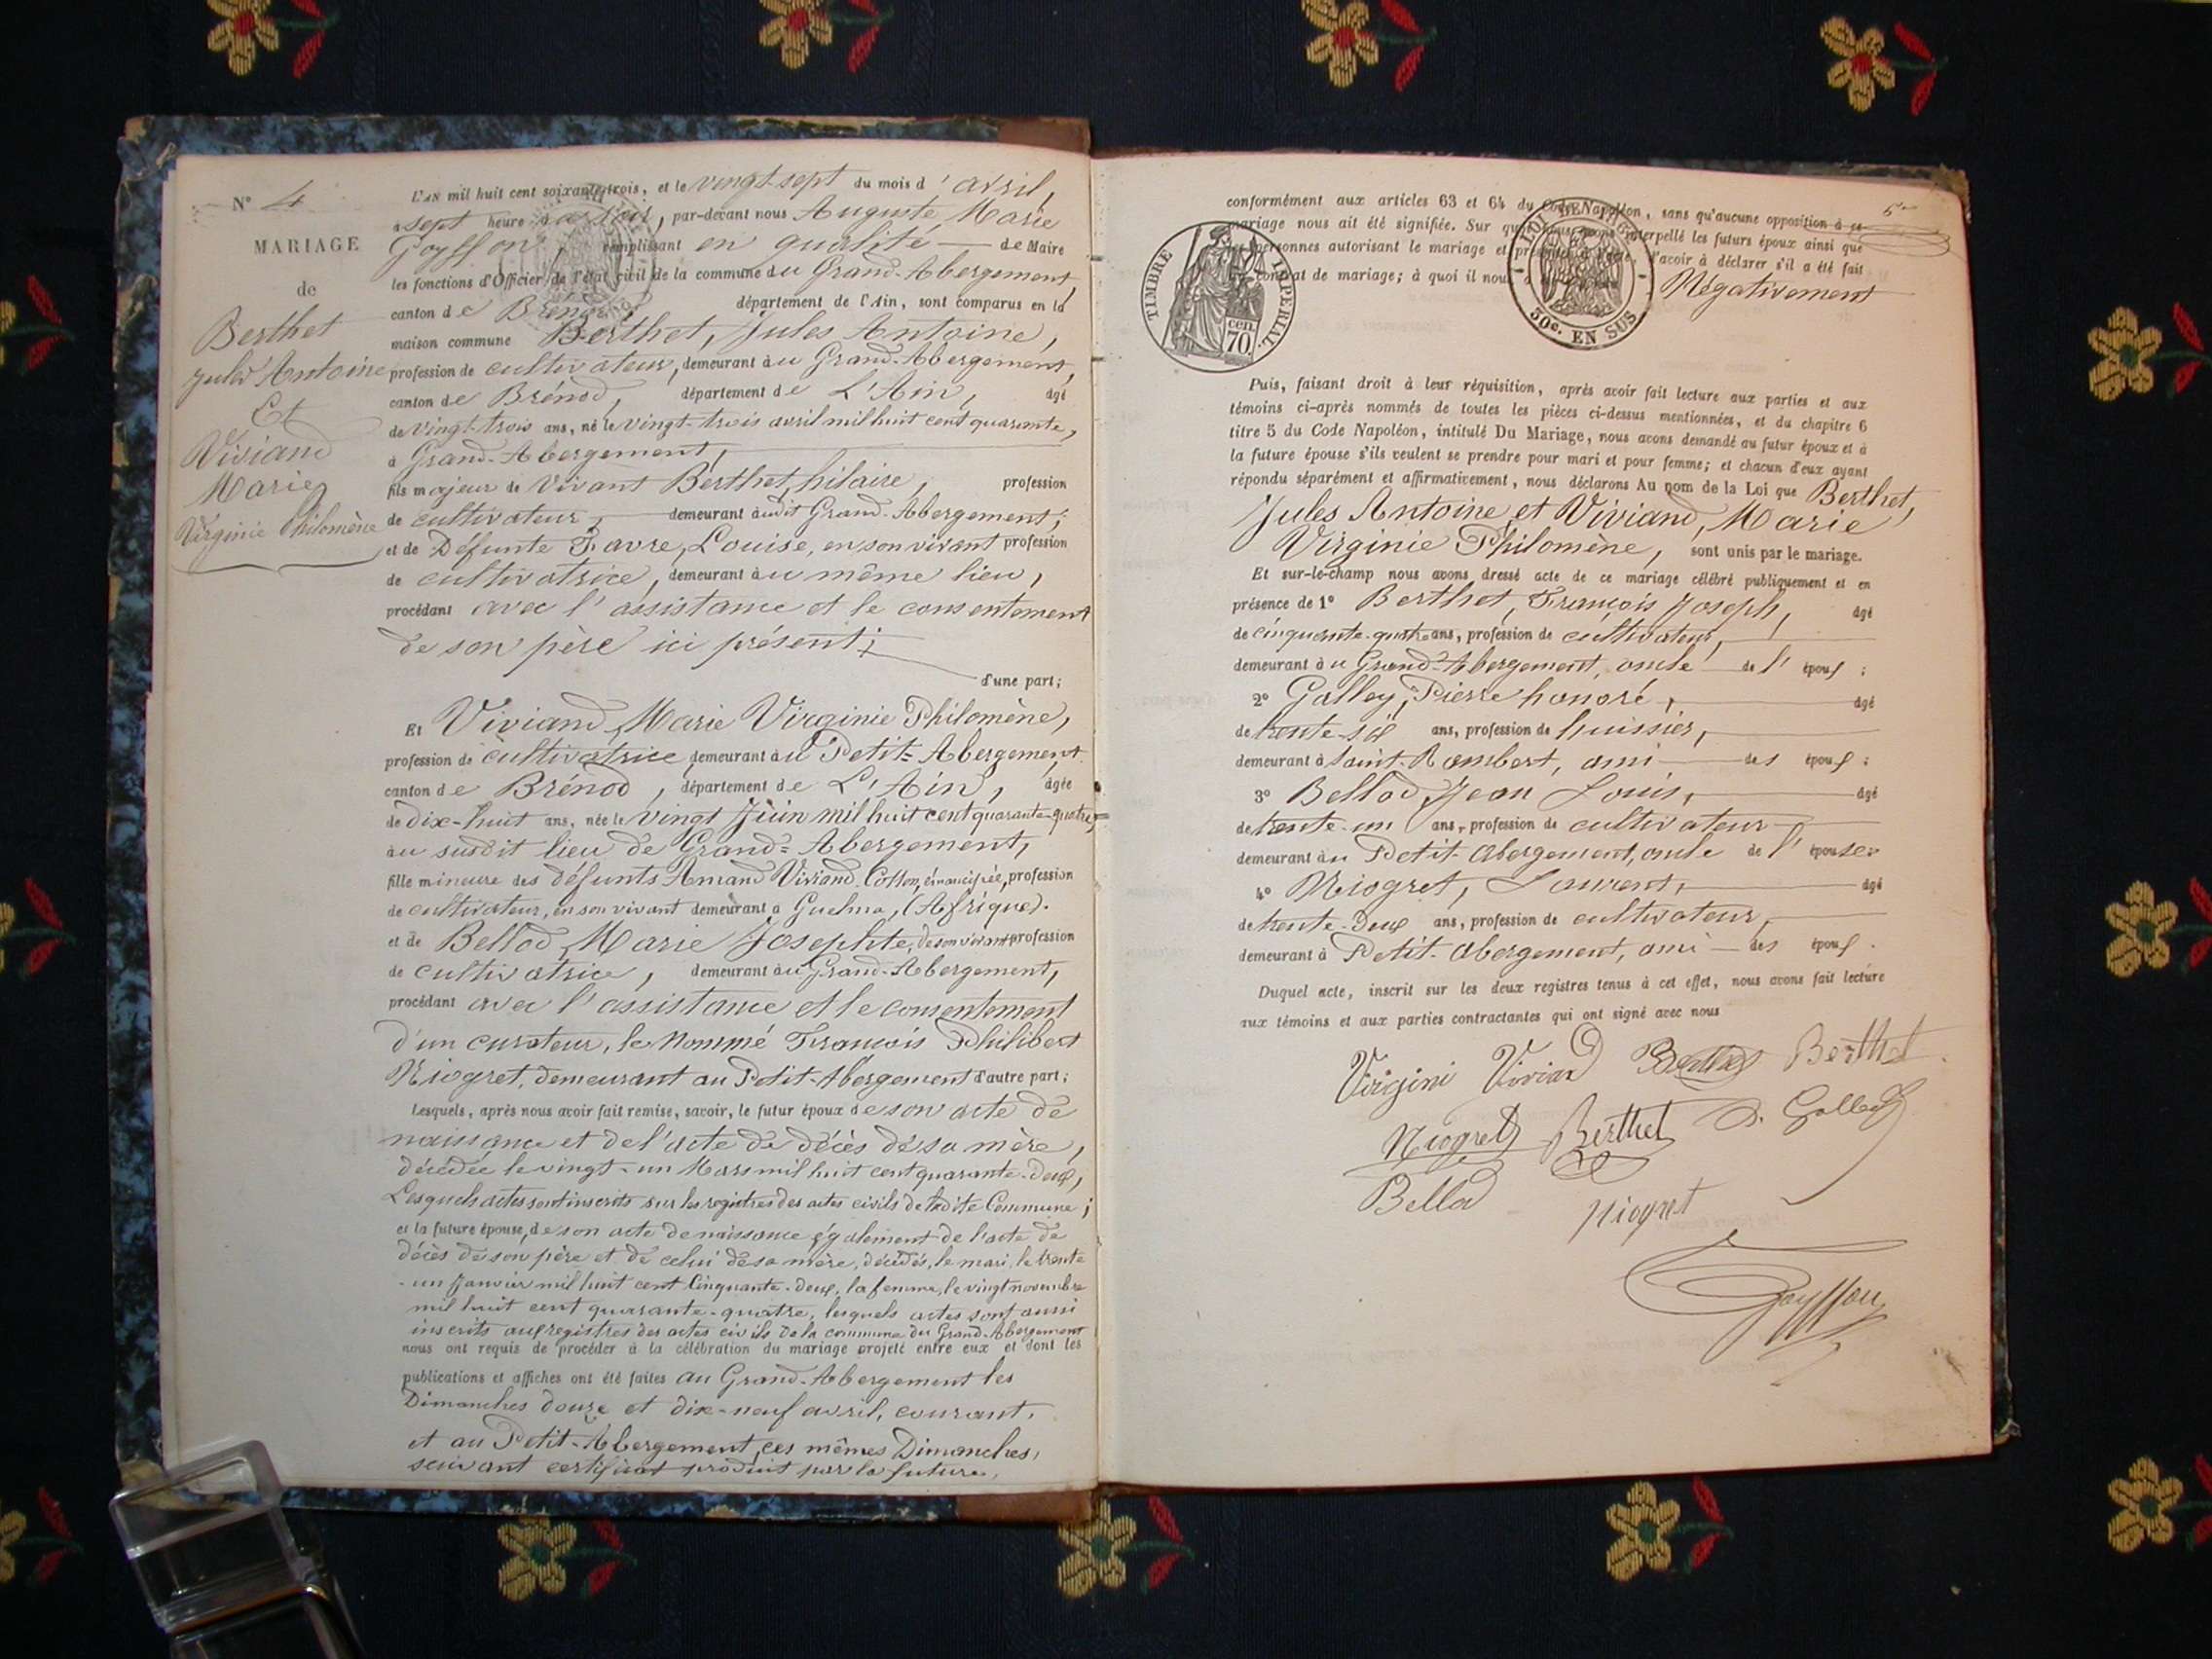 N° 4
MARIAGE
de
Berthet
Jules Antoine
Et
Viviand
Marie
Virginie Philomène
L'AN mil huit cent soixante-trois, et le vingt-sept du mois d'avril,
à sept heure du soir, par-devant nous Auguste Marie
Goyffon, remplissant en qualité de Maire
les fonctions d'Officier de l'état civil de la commune du Grand-Abergement,
canton de Brénod, département de l'Ain, sont comparus en la
maison commune Berthet, Jules Antoine,
profession de cultivateur, demeurant au Grand-Abergement,
canton de Brénod, département de L'Ain, âgé
de vingt-trois ans, né le vingt-trois avril mil huit cent quarante,
à Grand-Abergement,
fils majeur de vivant Berthet, hilaire, profession
de cultivateur, demeurant audit Grand-Abergement;
et de Défunte Favre, Louise, en son vivant profession
de cultivatrice, demeurant au même lieu,
procédant avec l'assistance et le consentement
de son père ici présent;
d'une part;
Et Viviand, Marie Virginie Philomène,
profession de cultivatrice, demeurant au Petit-Abergement,
canton de Brénod, département de L'Ain, âgée
de dix-huit ans, née le vingt Juin mil huit cent quarante-quatre,
au susdit lieu de Grand-Abergement,
fille mineure des défunts Amand Viviand Collon, émancipée, profession
de cultivateur, en son vivant demeurant a Guelma, (Afrique).
et de Bellod, Marie Josephte, de son vivant profession
de cultivatrice, demeurant au Grand-Abergement,
procédant avec l'assistance et le consentement
d'un curateur, le nommé François Philibert
Niogret, demeurant au Petit-Abergement d'autre part;
Lesquels, après nous avoir fait remise, savoir, le futur époux de son acte de
naissance et de l'acte de décès de sa mère,
décédée le vingt-un Mars mil huit cent quarante-deux,
Lesquels actes sont inscrits sur les registres des actes civils de ladite Commune;
et la future épouse, de son acte de naissance également de l'acte de
décès de son père et de celui de sa mère, décédés, le mari, le trente
-un Janvier mil huit cent Cinquante-deux, la femme, le vingt novembre
mil huit cent quarante-quatre, lesquels actes sont aussi
inscrits aux registres des actes civils de la commune du Grand-Abergement
nous ont requis de procéder à la célébration du mariage projeté entre eux et dont les
publications et affiches ont été faites au Grand-Abergement les
Dimanches douze et dix-neuf avril, courant,
et au Petit-Abergement, ces mêmes Dimanches,
suivant certificat produit par la future,
5
conformément aux articles 63 et 64 du Code Napoléon, sans qu'aucune opposition à ce
mariage nous ait été signifiée. Sur quoi nous avons interpellé les futurs époux ainsi que
les personnes autorisant le mariage et présentes à l'acte, d'avoir à déclarer s'il a été fait
un contrat de mariage; à quoi il nous a Négativement
TIMBRE IMPERIAL
70 cen.
LOI DE
50c. EN SUS
Puis, faisant droit à leur réquisition, après avoir fait lecture aux parties et aux
témoins ci-après nommés de toutes les pièces ci-dessus mentionnées, et du chapitre 6
titre 5 du Code Napoléon, intitulé Du Mariage, nous avons demandé au futur époux et à
la future épouse s'ils veulent se prendre pour mari et pour femme; et chacun d'eux ayant
répondu séparément et affirmativement, nous déclarons Au nom de la Loi que Berthet,
Jules Antoine et Viviand, Marie
Virginie Philomène, sont unis par le mariage.
Et sur-le-champ nous avons dressé acte de ce mariage célébré publiquement et en
présence de 1° Berthet, François Joseph, âgé
de cinquante-quatre ans, profession de cultivateur,
demeurant au Grand-Abergement, oncle de l'époux;
2° Galley, Pierre honoré, âgé
de trente-six ans, profession de huissier,
demeurant à Saint-Rambert, ami des époux;
3° Bellod, Jean Louis, âgé
de trente-un ans, profession de cultivateur
demeurant au Petit-abergement, oncle de l'épouse
4° Niogret, Laurent, âgé
de trente-deux ans, profession de cultivateur,
demeurant à Petit-abergement, ami des époux.
Duquel acte, inscrit sur les deux registres tenus à cet effet, nous avons fait lecture
aux témoins et aux parties contractantes qui ont signé avec nous
Virgini Vivian Berthet Berthet
Niogret Berthet Galley
Bellod Niogret
Goyffon